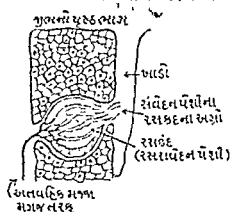 જીભનો પૃષ્ઠભાગ
ખાડો
સંવેદન પેશીના
રસકંદના અગ્રો
રસકંદ
(રસસંવેદન પેશી)
(અંતર્વાહક મજ્જા
મગજ તરફ